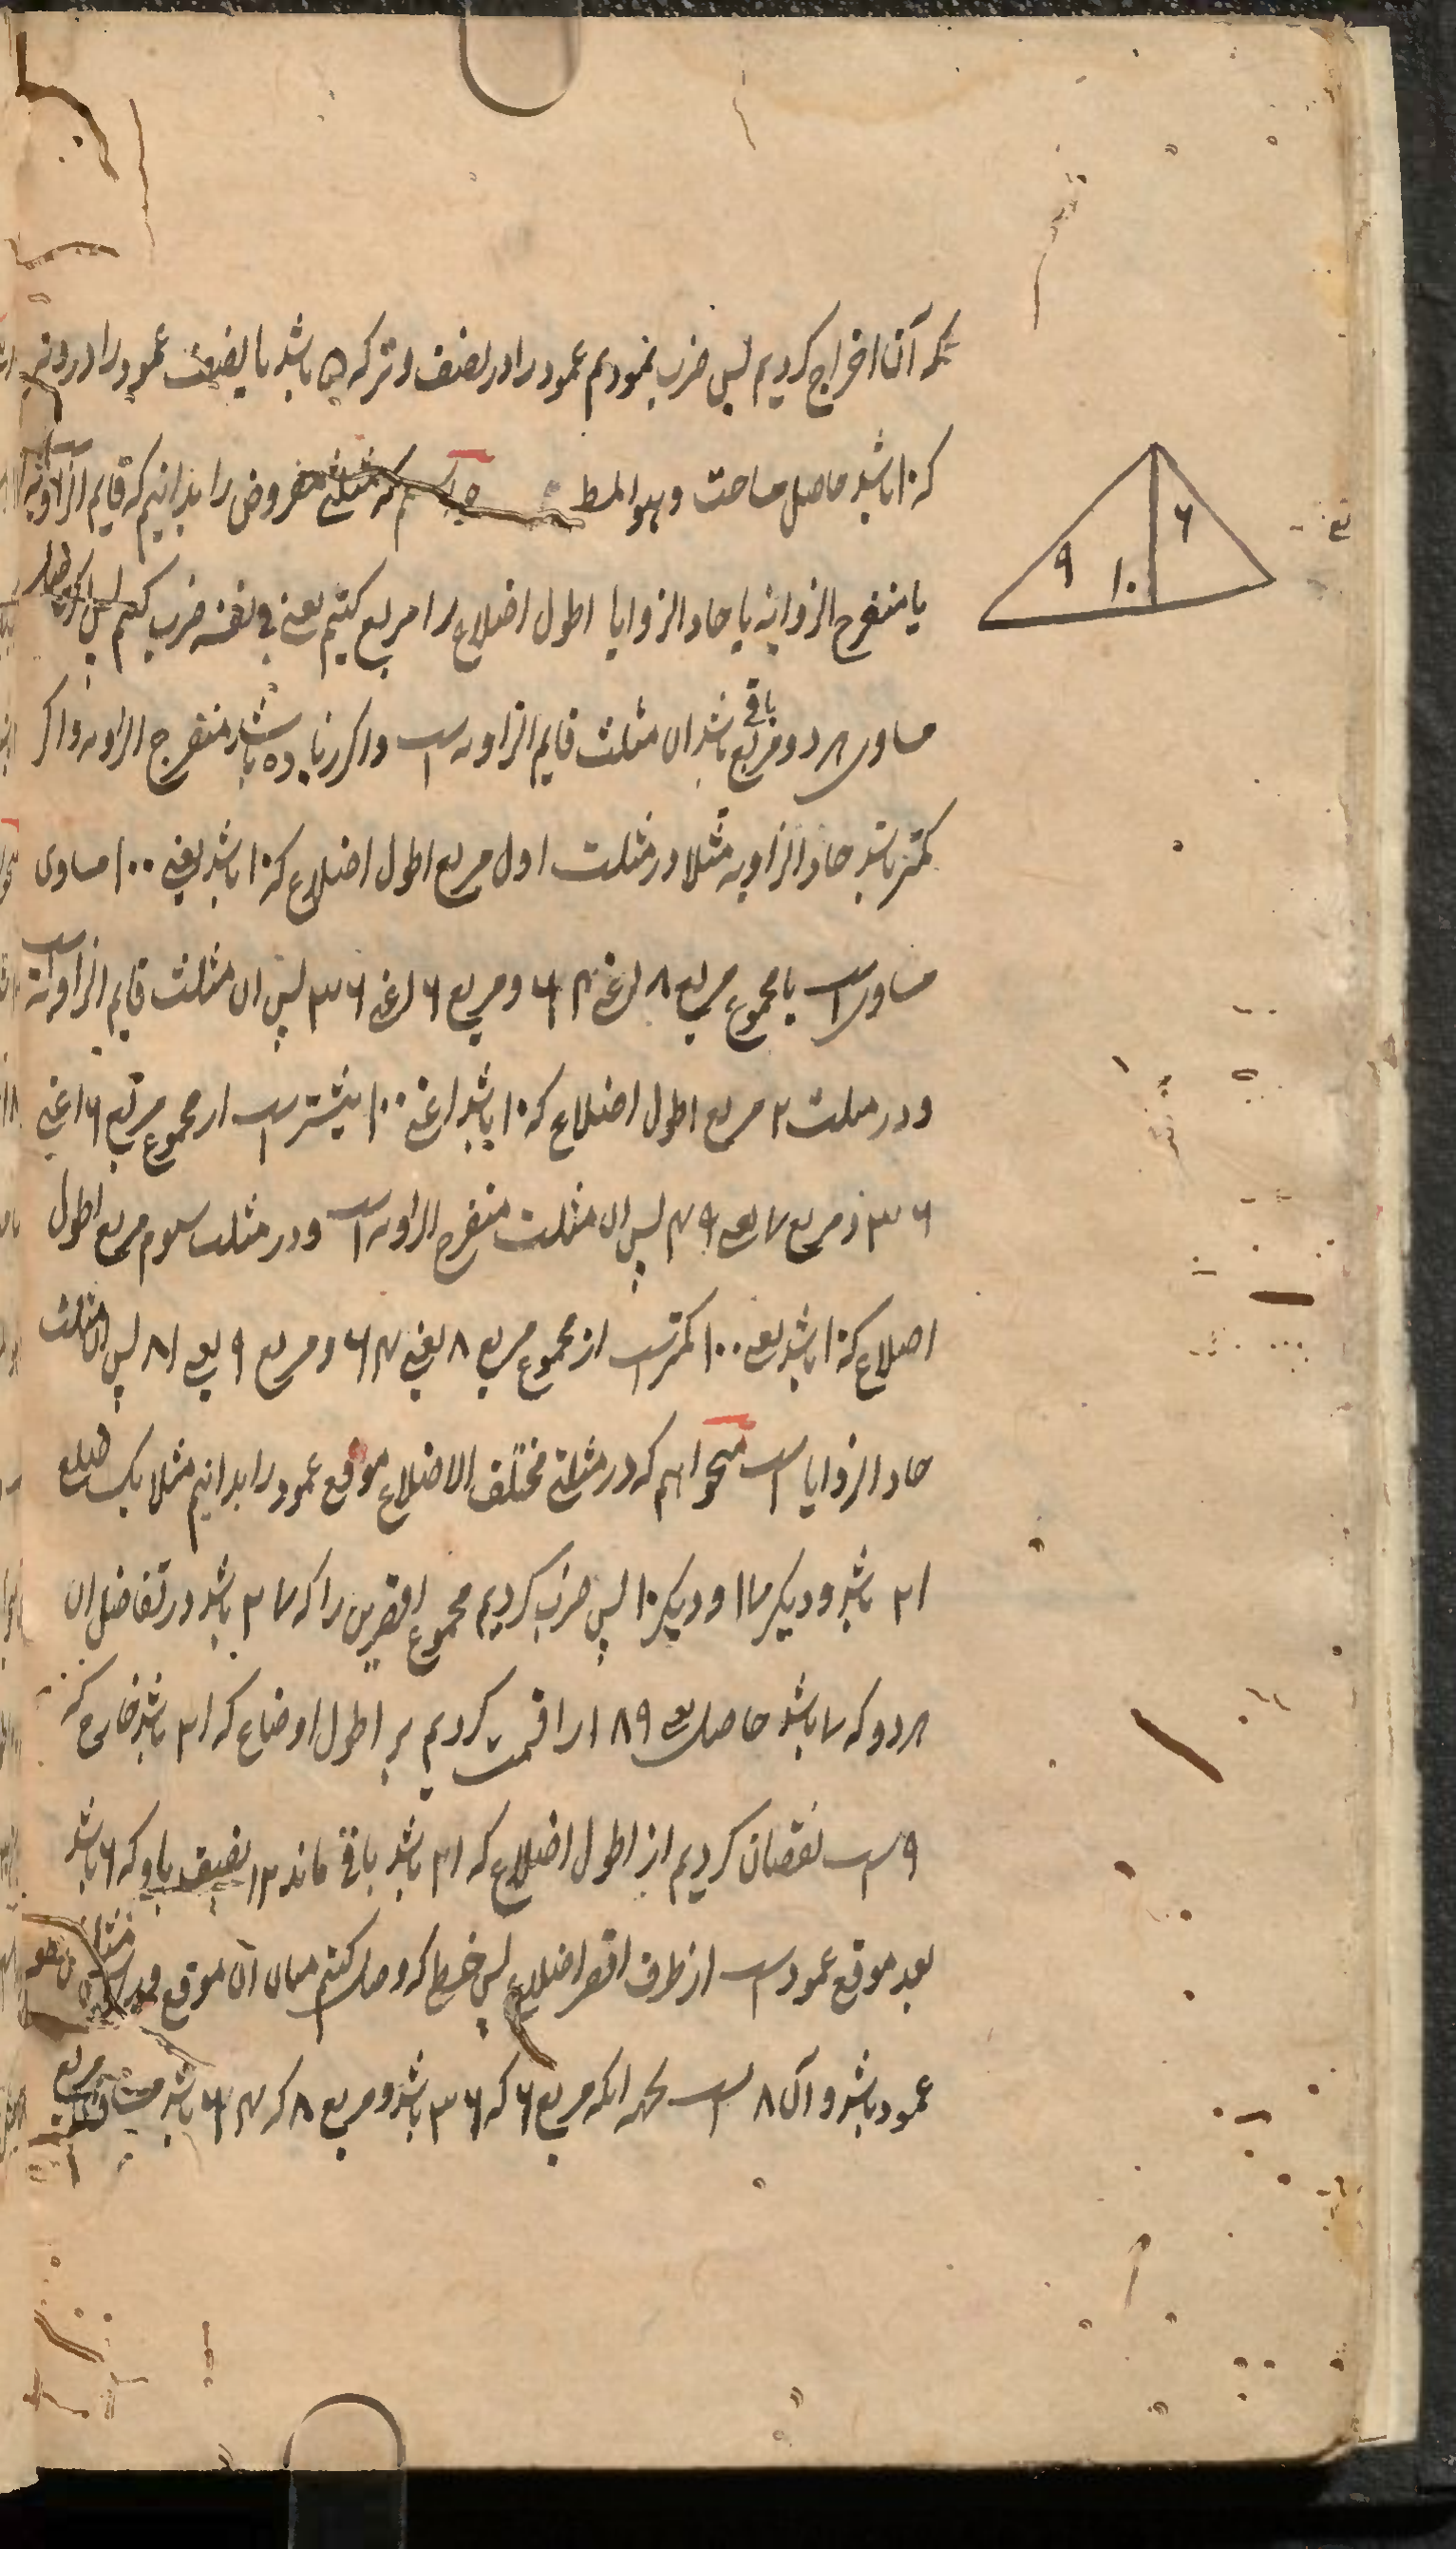 که آن اخراج کردیم پس ضرب نمودیم عمود را در نصف وتر که ۵ باشد یا نصف عمود را در وتر
که ۱۰ باشد حاصل مساحت و هو المط که مثلثی مفروض را بدانیم که قایم الزاویه
یا منفرج الزوایه یا حاد الزوایا اطول اضلاع را مربع کنیم یعنی فی نفسه ضرب کنیم پس اگر
مساوی هر دو مربع باقی باشد ان مثلث قایم الزاویه است و اکر زیاده باشد منفرج الزاویه و اکر
کمتر باشد حاد الزاویه مثلا در مثلث اول مربع اطول اضلاع که ۱۰ باشد یعنی ۱۰۰ مساوی
مساوی است با مجموع مربع ۸ اعنی ۶۴ و مربع ۶ اعنی ۳۶ پس ان مثلث قایم الزاویه است
و در مثلث ۲ مربع اطول اضلاع که ۱۰ باشد اعنی ۱۰۰ بیشتر است از مجموع مربع ۶ اعنی
۳۶ و مربع ۷ یعنی ۴۹ پس ان مثلث منفرج الزاویه است و در مثلث سوم مربع اطول
اضلاع که ۱۰ باشد یعنی ۱۰۰ کمتر است از مجموع مربع ۸ یعنی ۶۴ و مربع ۹ یعنی ۸۱ پس ان مثلث
حاد الزوایا است میخواهم که در مثلثی مختلف الاضلاع موقع عمود را بدانیم مثلا یک ضلع
۲۱ باشد و دیکر ۱۷ و دیکر ۱۰ پس ضرب کردیم مجموع اقصرین را که ۲۷ باشد در تفاضل ان
هر دو که ۷ باشد حاصل یعنی ۱۸۹ را قسمت کردیم بر اطول اوضاع که ۲۱ باشد خارج که
۹ است نقصان کردیم از اطول اضلاع که ۲۱ باشد باقی ماند ۱۲ نصف باو که ۶ باشد
بعد موقع عمود است از طرف اقصر اضلاع پس خطی که وصل کنیم میان آن موقع و
عمود باشد و آن ۸ است بجهة انکه مربع ۶ که ۳۶ باشد و مربع ۸ که ۶۴ باشد مربع
۶
۹
۱۰